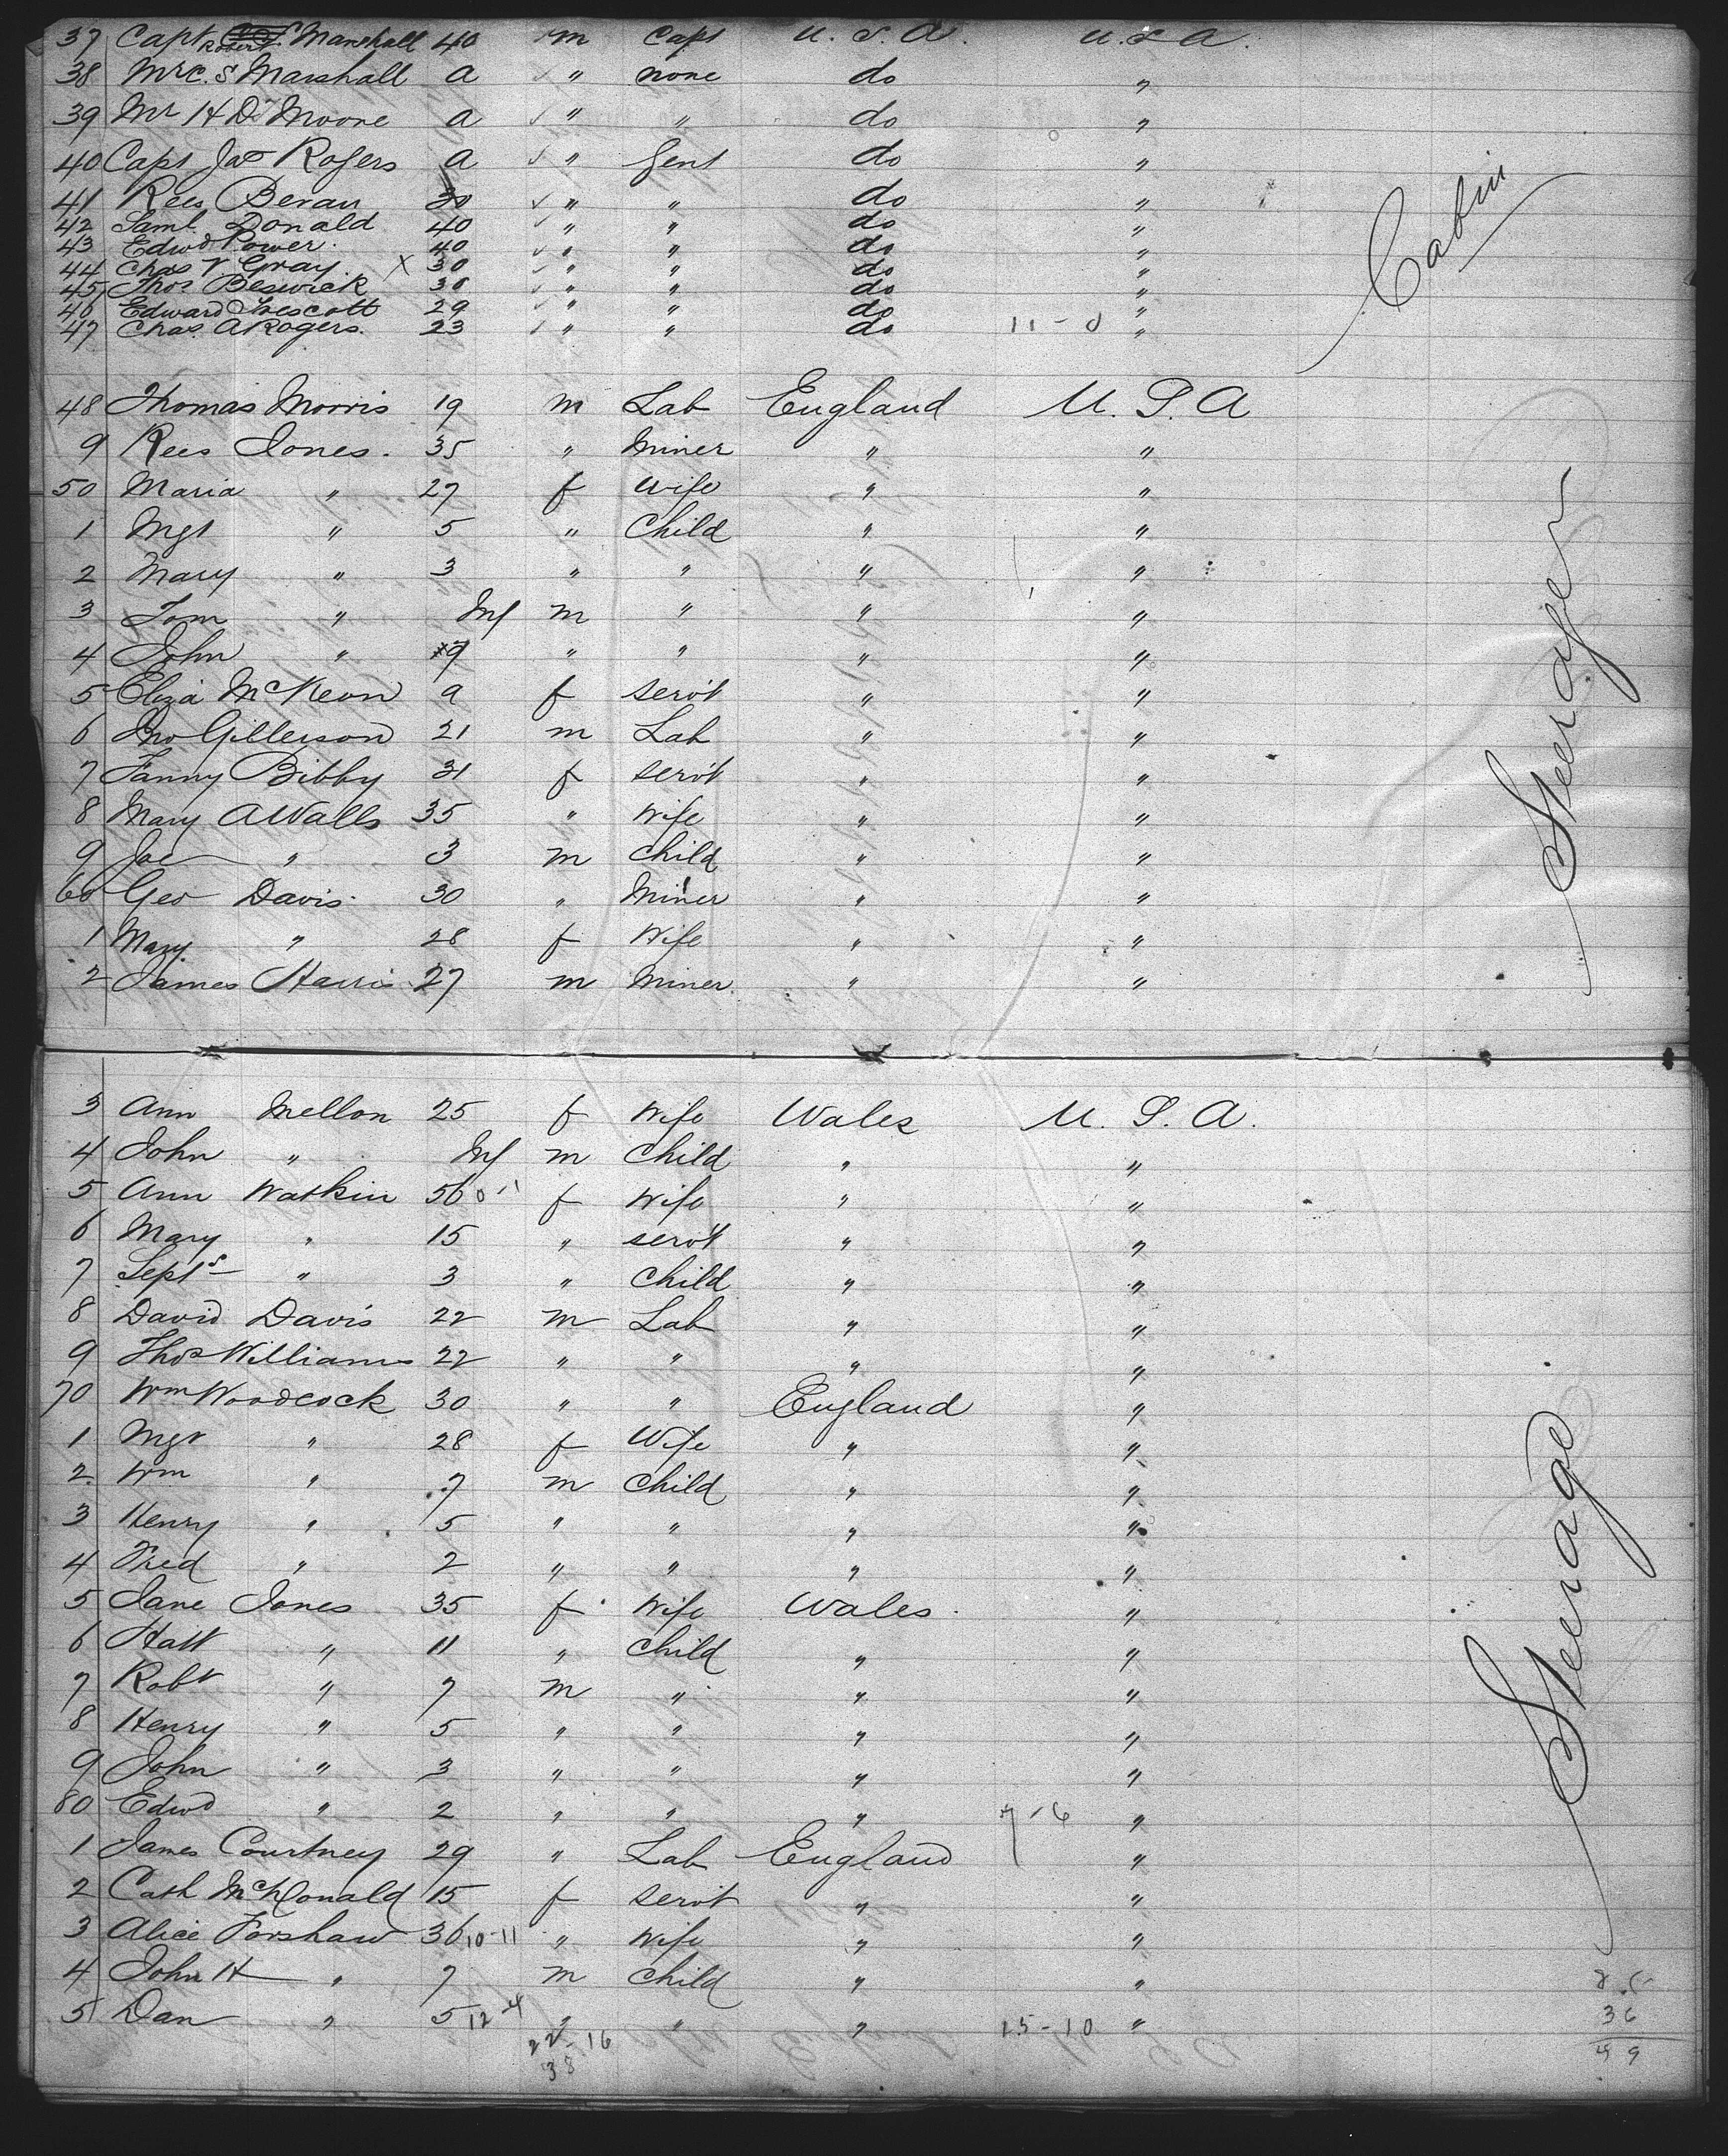 37 Capt Robert Marshall 40 m Capt U.S.A. U.S.A.
38 Mr C. S Marshall a " none do "
39 Mr H D Moore a " " do "
40 Capt Jas Rogers a " Gent do "
41 Rees Bevan 30 " " do "
42 Saml. Donald 40 " " do "
43 Edwd Power. 40 " " do "
44 Chas V Gray X 30 " " do "
45 Thos Beswick 30 " " do "
46 Edward Lescott 29 " " do "
47 Chas. A Rogers. 23 " " do 11-0 "
Cabin
48 Thomas Morris 19 m Lab England U.S.A
9 Rees Jones. 35 " Miner " "
50 Maria " 27 f Wife " "
1 Mgt " 5 " Child " "
2 Mary " 3 " " " "
3 Tom " Inf m " " "
4 John " 9 " " " "
5 Eliza McKeon a f servt " "
6 Jno Gillerson 21 m Lab " "
7 Fanny Bibby 31 f servt " "
8 Mary A Walls 35 " Wife " "
9 Joe " 3 m Child " "
60 Geo Davis. 30 " Miner " "
1 Mary " 28 f Wife " "
2 James Harris 27 m Miner " "
Steerage
3 Ann Mellon 25 f Wife Wales U.S.A.
4 John " Inf m Child " "
5 Ann Watkin 56 f Wife " "
6 Mary " 15 " servt " "
7 Septs " 3 " Child " "
8 David Davis 22 m Lab " "
9 Thos Williams 22 " " " "
70 Wm Woodcock 30 " " England "
1 Mgt " 28 f Wife " "
2 Wm " 7 m Child " "
3 Henry " 5 " " " "
4 Fred " 2 " " " "
5 Jane Jones 35 f Wife Wales. "
6 Hatt " 11 " Child " "
7 Robt " 7 m " " "
8 Henry " 5 " " " "
9 John " 3 " " " "
80 Edwd " 2 " " " 7-6 "
1 James Courtney 29 " Lab England "
2 Cath McDonald 15 f servt " "
3 Alice Forshaw 36 10-11 " Wife " "
4 John H " 7 m Child " "
5 Dan " 5 12-4 " " " 15-10 "
22-16
38
Steerage
85
36
49